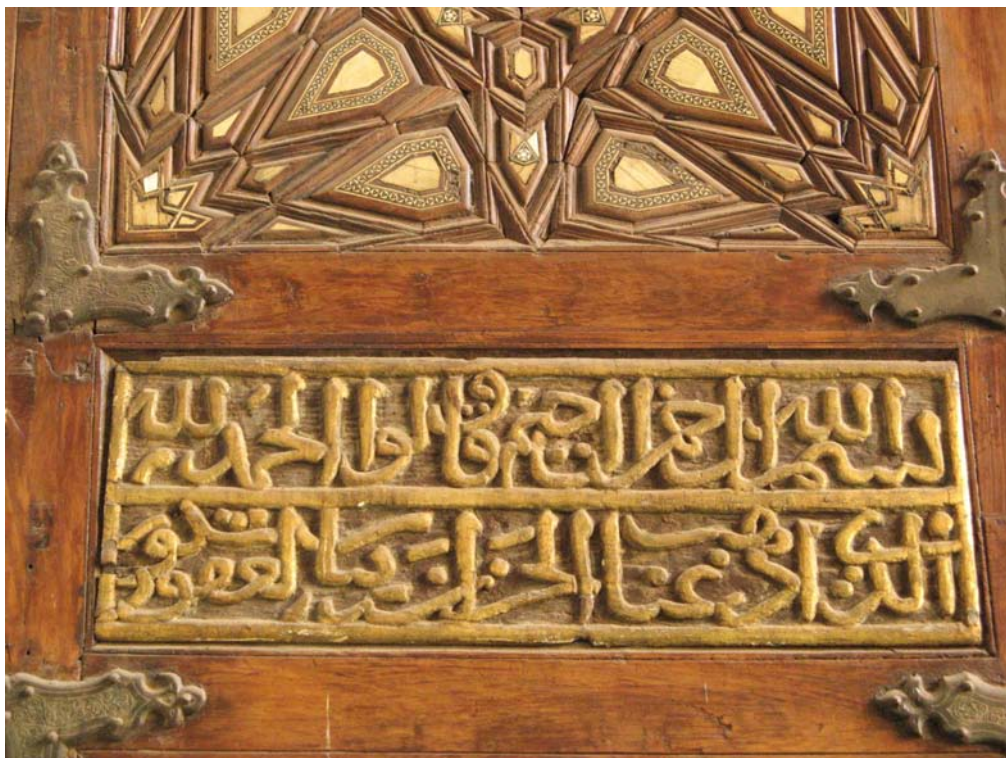 بسم الله الرحمن الرحيم وقالوا الحمد لله
الذي اذهب عنا الحزن ان ربنا لغفور شكور